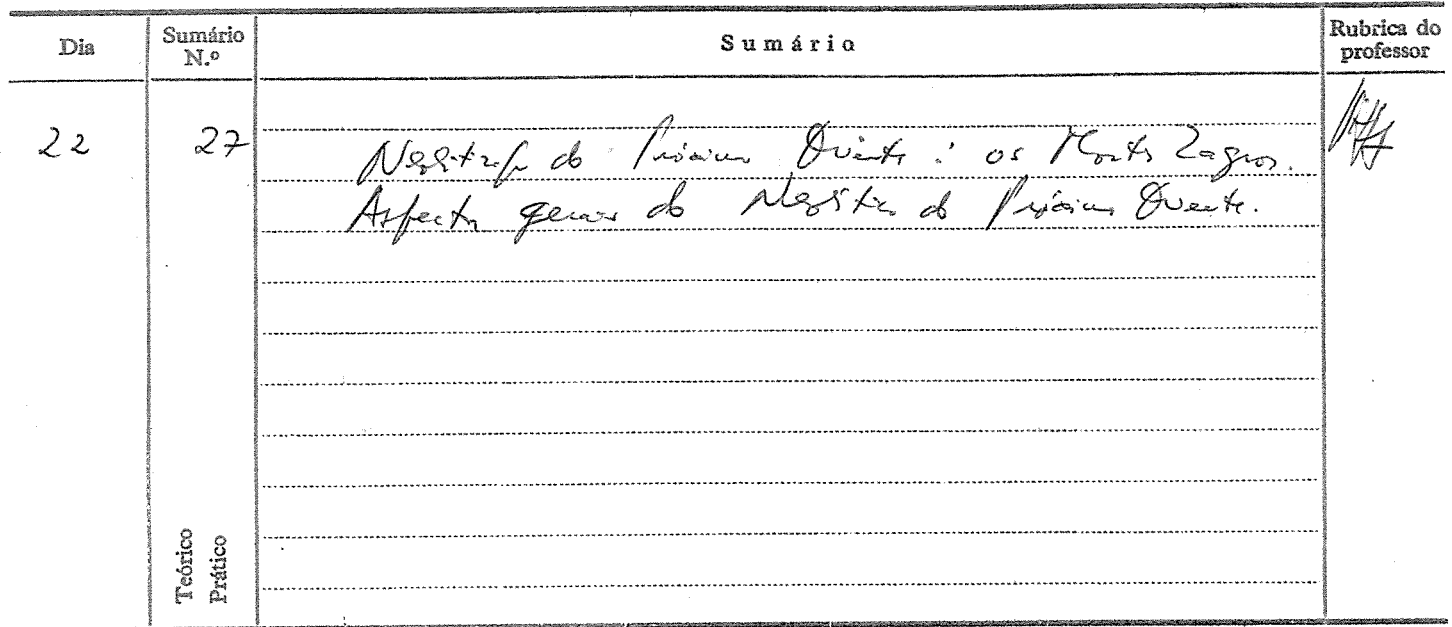 Dia
Sumário N.º
Sumário
Rubrica do professor
22
27
do Próximo Oriente: os Montes Zagros.
Aspectos gerais do Neolítico do Próximo Oriente.
Teórico
Prático